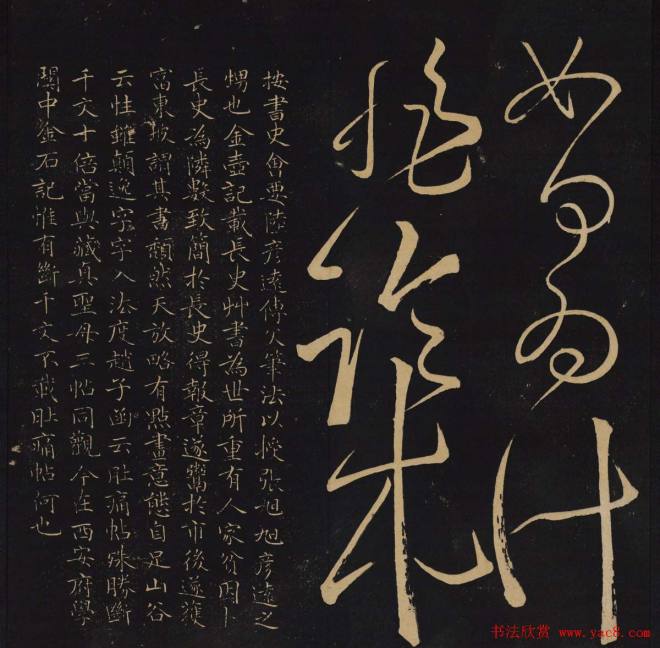 如何為計
非臨床
按書史會要陸彥遠傳父筆法以授張旭旭彥遠之
甥也金壺記載長史艸書為世所重有人家貧因卜
長史為隣數致簡於長史得報章遂鬻於市後遂獲
富東坡謂其書頹然天放略有點畫意態自足山谷
云性雖顛逸字字入法度趙子函云肚痛帖殊勝斷
千文十倍當與藏真聖母三帖同觀今在西安府學
關中金石記惟有斷千文不載肚痛帖何也
书法欣赏 www.yac8.com